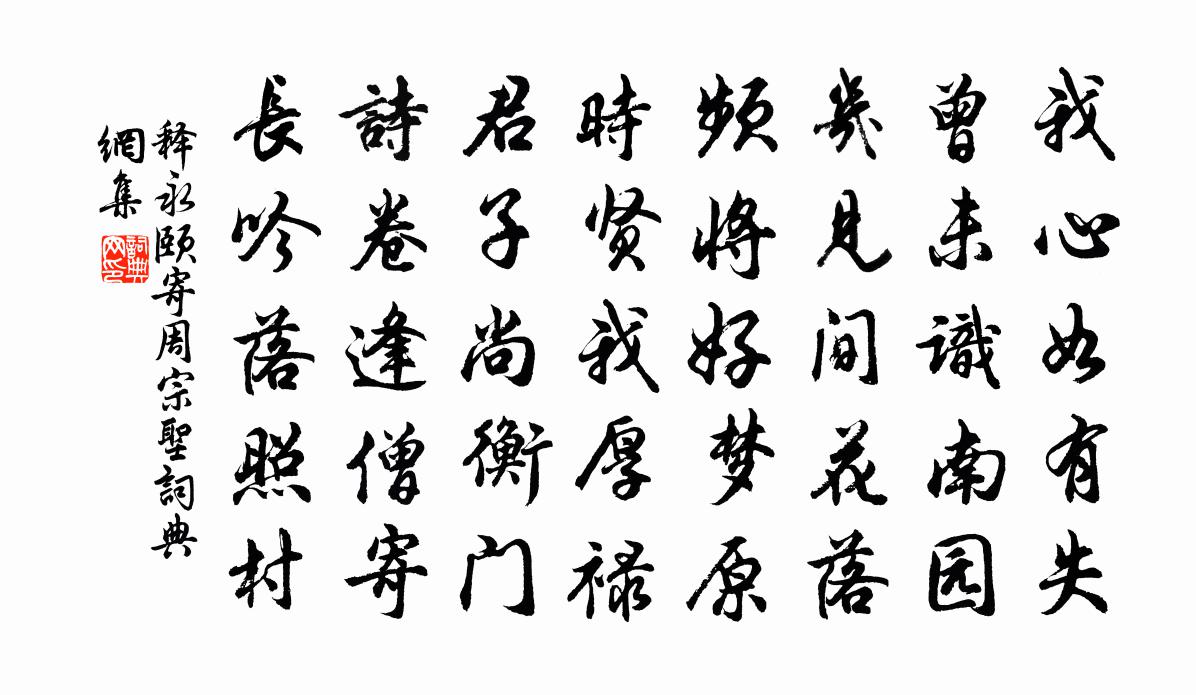 我心如有失
曾未識南园
幾見间花落
频将好梦原
時贤我厚禄
君子尚衡门
詩卷逢僧寄
長吟落照村
释永颐寄周宗聖詞典
網集
詞典网印